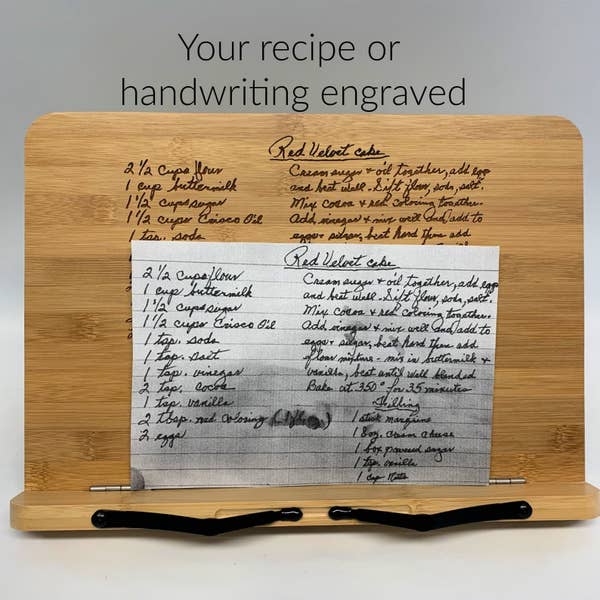 Your recipe or
handwriting engraved
Red Velvet cake
2 1/2 cups flour
1 cup buttermilk
1 1/2 cups sugar
1 1/2 cups Crisco Oil
1 tsp. soda
Cream sugar + oil together, add eggs
and beat well. Sift flour, soda, salt.
Mix cocoa + red coloring together.
Add vinegar + mix well and add to
eggs + sugar, beat hard then add
Red Velvet cake
2 1/2 cups flour
1 cup buttermilk
1 1/2 cups sugar
1 1/2 cups Crisco Oil
1 tsp. soda
1 tsp. salt
1 tsp. vinegar
2 tsp. cocoa
1 tsp. vanilla
2 tbsp. red coloring
2 eggs
Cream sugar + oil together, add eggs
and beat well. Sift flour, soda, salt.
Mix cocoa + red coloring together.
Add vinegar + mix well and add to
eggs + sugar, beat hard then add
flour mixture - mix in buttermilk +
vanilla, beat until well blended
Bake at 350° for 35 minutes
Filling
1 stick margarine
1 8oz. cream cheese
1 box powered sugar
1 tsp. vanilla
1 cup Nuts